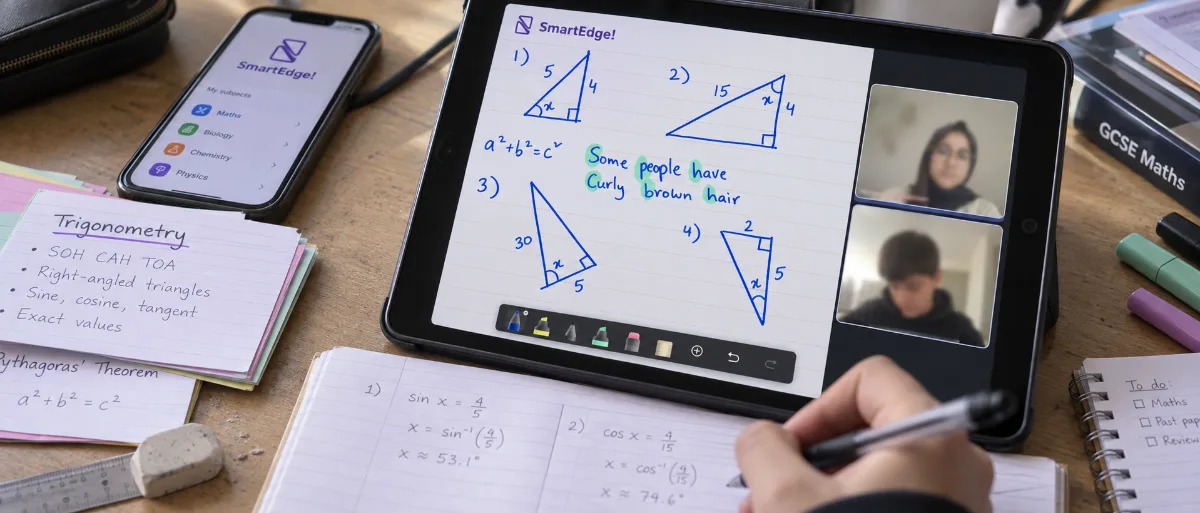 SmartEdge!
My subjects
Maths
Biology
Chemistry
Physics
SmartEdge!
1)
5
4
x
2)
15
x
4
a²+b²=c²
Some people have
Curly brown hair
3)
30
x
5
4)
2
5
x
GCSE Maths
Trigonometry
• SOH CAH TOA
• Right-angled triangles
• Sine, cosine, tangent
• Exact values
Pythagoras' Theorem
a² + b² = c²
1)
sin x = 4/5
x = sin⁻¹(4/5)
x ≈ 53.1°
2)
cos x = 4/15
x = cos⁻¹(4/15)
x ≈ 74.6°
To do:
Maths
Past pap
Review